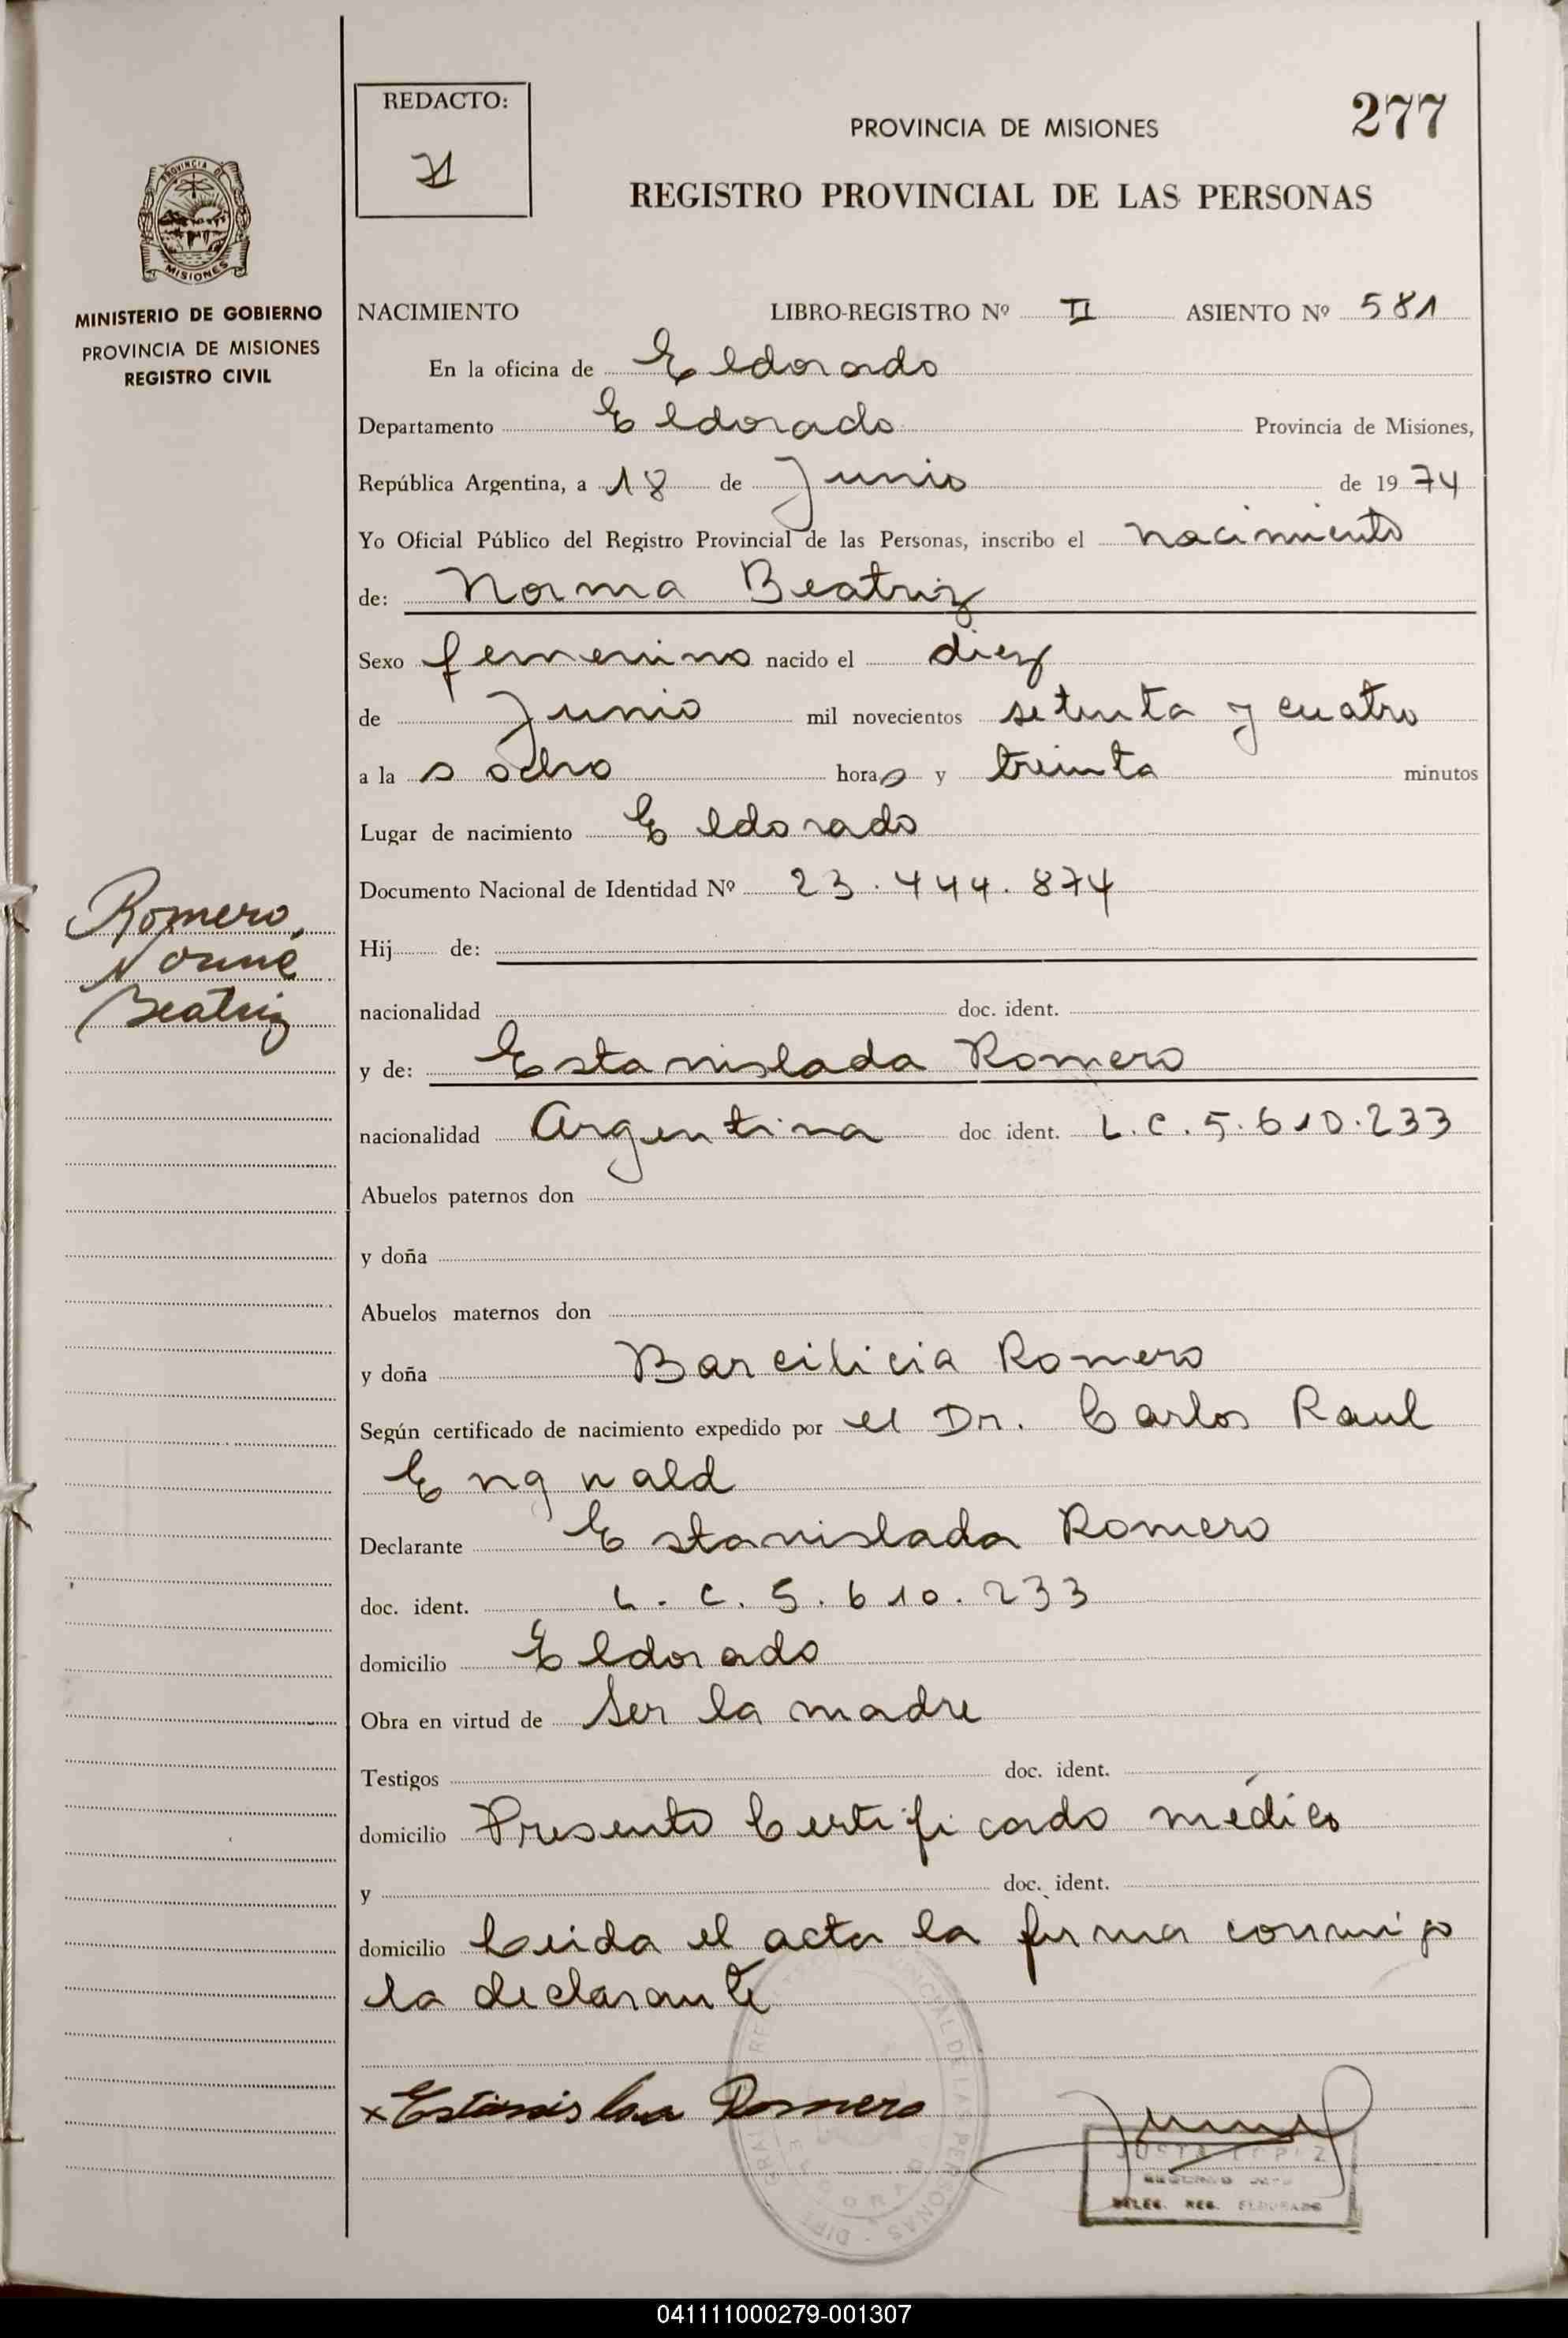 REDACTO:
PROVINCIA DE MISIONES
277
REGISTRO PROVINCIAL DE LAS PERSONAS
PROVINCIA DE
MISIONES
MINISTERIO DE GOBIERNO
PROVINCIA DE MISIONES
REGISTRO CIVIL
NACIMIENTO LIBRO-REGISTRO Nº II ASIENTO Nº 581
En la oficina de Eldorado
Departamento Eldorado Provincia de Misiones,
República Argentina, a 18 de Junio de 1974
Yo Oficial Público del Registro Provincial de las Personas, inscribo el nacimiento
de: Norma Beatriz
Sexo femenino nacido el diez
de Junio mil novecientos setenta y cuatro
a la s ocho horas y treinta minutos
Lugar de nacimiento Eldorado
Documento Nacional de Identidad Nº 23.444.874
Romero,
Norma
Beatriz
Hij de:
nacionalidad doc. ident.
y de: Estanislada Romero
nacionalidad Argentina doc ident. L.C.5.610.233
Abuelos paternos don
y doña
Abuelos maternos don
y doña Barcilicia Romero
Según certificado de nacimiento expedido por el Dr. Carlos Raul
Engwald
Declarante Estanislada Romero
doc. ident. L.C.5.610.233
domicilio Eldorado
Obra en virtud de Ser la madre
Testigos doc. ident.
domicilio Presento Certificado médico
y doc. ident.
domicilio Leida el acta la firma conmigo
la declarante
x Estanisloa Romero
DELEG. REG. ELDORADO
041111000279-001307